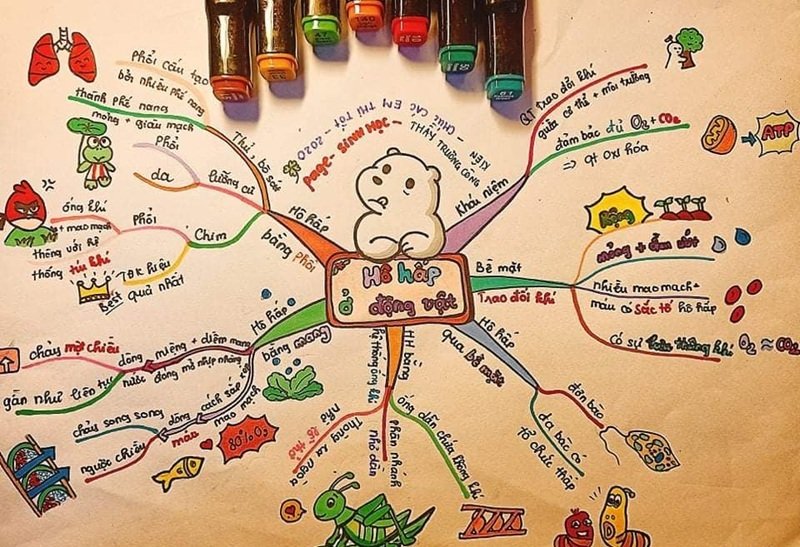 Hô hấp
ở động vật
page-SINH HỌC-
THẦY TRƯƠNG CÔNG
KIÊN
CHÚC CÁC EM THI TỐT-2020
Khái niệm
QT trao đổi khí
giữa cơ thể + môi trường
đảm bảo đủ O2 + CO2
=> qt oxi hóa
ATP
Bề mặt
Trao đổi khí
Rộng
mỏng + ẩm ướt
nhiều mao mạch +
máu có sắc tố hô hấp
có sự lưu thông khí
O2 ≈ CO2
Hô hấp
qua bề mặt
đơn bào
đa bào có
tổ chức thấp
HH bằng
hệ thống ống khí
ống dẫn chứa không khí
phân nhánh
nhỏ dần
Thông ra ngoài
nhờ lỗ thở
Hô hấp
bằng mang
miệng + diềm mang
đóng mở nhịp nhàng
dòng
nước
chảy một chiều
gần như liên tục
cách sắp xếp
mao mạch
dòng
máu
chảy song song
ngược chiều
80% O2
Hô hấp
bằng phổi
Thú, bò sát
Phổi cấu tạo
bởi nhiều phế nang
thành phế nang
mỏng + giàu mạch
lưỡng cư
Phổi
da
Chim
Phổi
ống khí
+ mao mạch
thông với hệ
thống túi khí
TĐK hiệu
quả nhất
Best